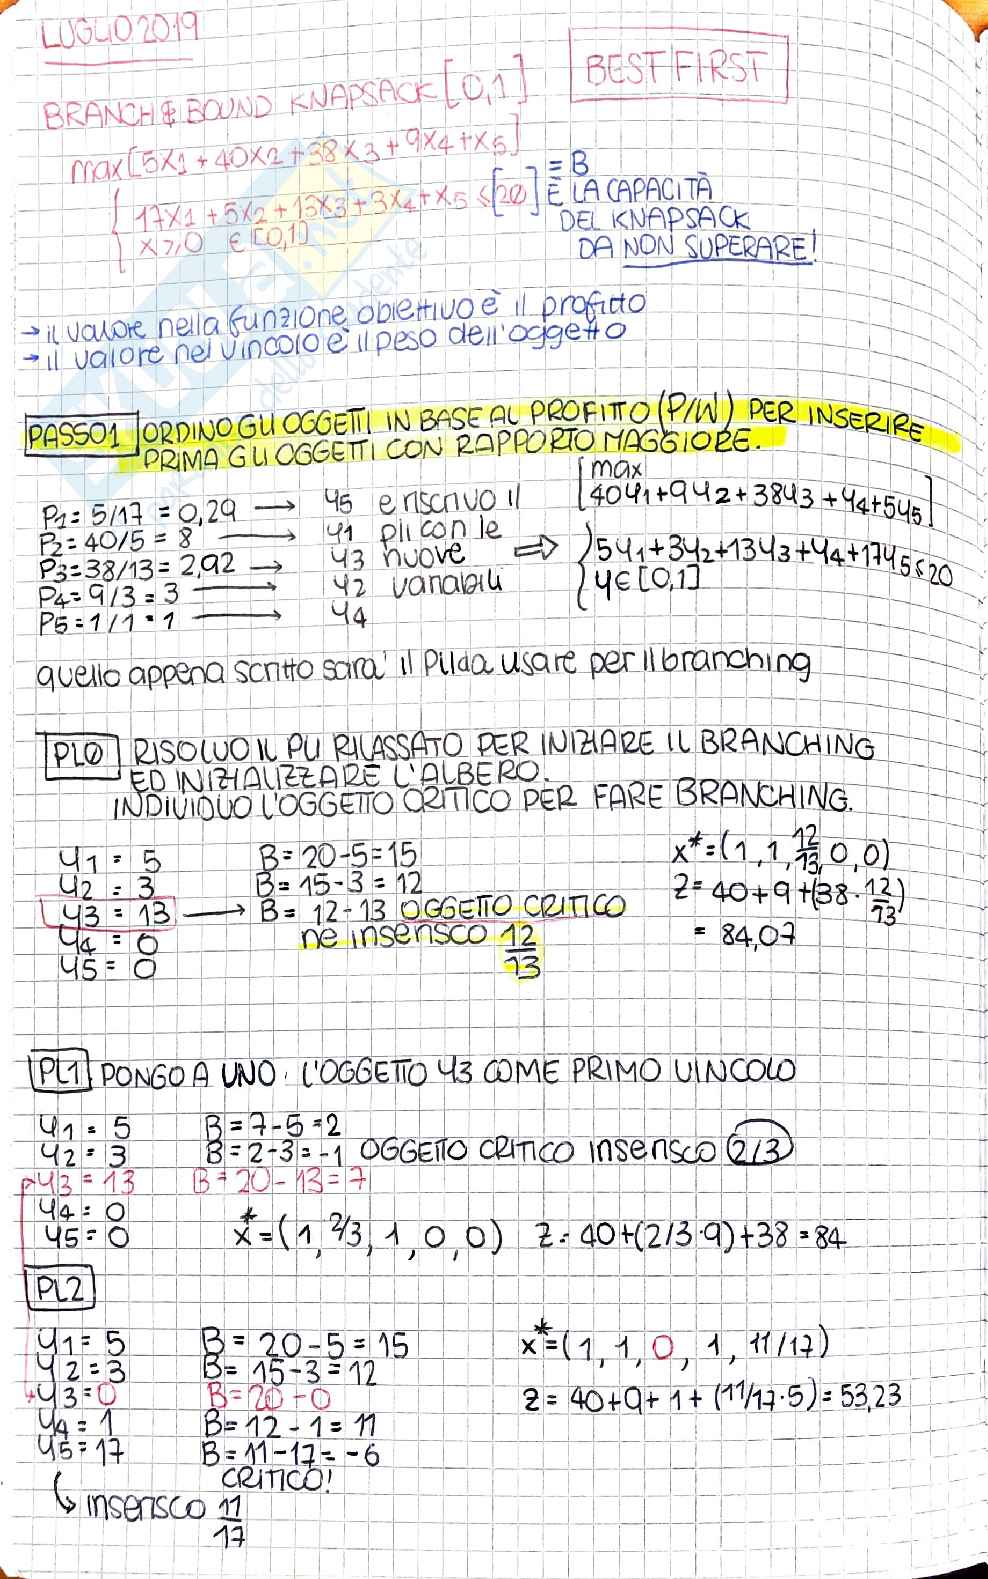 LUGLIO 2019
BEST FIRST
BRANCH & BOUND KNAPSACK [0,1]
max [5x1 + 40x2 + 38x3 + 9x4 + x5]
17x1 + 5x2 + 13x3 + 3x4 + x5 ≤ [20] = B
x ≥ 0 ∈ [0,1]
È LA CAPACITÀ
DEL KNAPSACK
DA NON SUPERARE!
→ il valore nella funzione obiettivo è il profitto
→ il valore nel vincolo è il peso dell'oggetto
PASSO1 ORDINO GLI OGGETTI IN BASE AL PROFITTO (P/W) PER INSERIRE
PRIMA GLI OGGETTI CON RAPPORTO MAGGIORE.
P1 = 5/17 = 0,29 → y5 e riscrivo il
P2 = 40/5 = 8 → y1 pli con le
P3 = 38/13 = 2,92 → y3 nuove ⇒
P4 = 9/3 = 3 → y2 variabili
P5 = 1/1 = 1 → y4
max
[40y1 + 9y2 + 38y3 + y4 + 5y5]
5y1 + 3y2 + 13y3 + y4 + 17y5 ≤ 20
y ∈ [0,1]
quello appena scritto sarà il Pli da usare per il branching
PL0 RISOLVO IL PLI RILASSATO PER INIZIARE IL BRANCHING
ED INIZIALIZZARE L'ALBERO.
INDIVIDUO L'OGGETTO CRITICO PER FARE BRANCHING.
y1 = 5 B = 20-5 = 15 x* = (1, 1, 12/13, 0, 0)
y2 = 3 B = 15-3 = 12 Z = 40 + 9 + (38 · 12/13)
y3 = 13 → B = 12-13 OGGETTO CRITICO
y4 = 0 ne inserisco 12/13 = 84,07
y5 = 0
PL1 PONGO A UNO L'OGGETTO y3 COME PRIMO VINCOLO
y1 = 5 B = 7-5 = 2
y2 = 3 B = 2-3 = -1 OGGETTO CRITICO inserisco 2/3
y3 = 13 B = 20-13 = 7
y4 = 0
y5 = 0 x* = (1, 2/3, 1, 0, 0) Z = 40 + (2/3·9) + 38 = 84
PL2
y1 = 5 B = 20-5 = 15 x* = (1, 1, 0, 1, 11/17)
y2 = 3 B = 15-3 = 12
y3 = 0 B = 20-0 Z = 40 + 9 + 1 + (11/17·5) = 53,23
y4 = 1 B = 12-1 = 11
y5 = 17 B = 11-17 = -6
CRITICO!
↳ inserisco 11/17